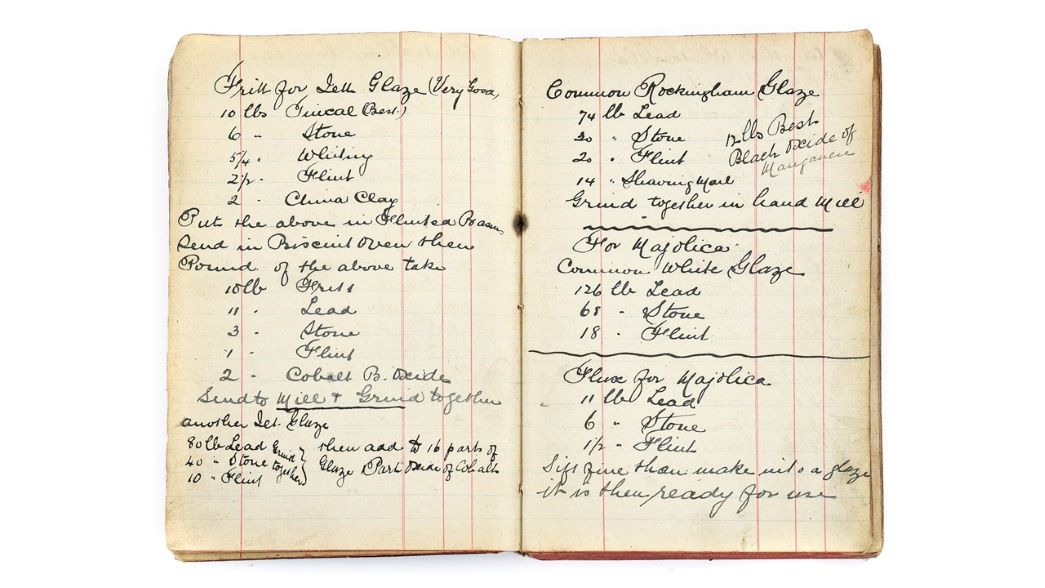 Fritt for Jett Glaze (Very Good)
10 lbs Tincal (Best)
6 " Stone
5/4 " Whiting
2/2 " Flint
2 " China Clay
Put the above in Flinted
Send in Biscuit Oven then
Pound of the above take
10 lb Fritt
11 " Lead
3 " Stone
1 " Flint
2 " Cobalt B. Oxide
Send to Mill & Grind together
another Jet Glaze
80 lb Lead Grind then add to 16 parts of
40 " Stone together Glaze 1 Part Oxide of Cobalt
10 " Flint
Common Rockingham Glaze
74 lb Lead
20 " Stone
20 " Flint
14 " Shaving Marl
12 lbs Best
Black Oxide of
Manganese
Grind together in hand Mill
For Majolica
Common White Glaze
126 lb Lead
68 " Stone
18 " Flint
Fluxe for Majolica
11 lb Lead
6 " Stone
1/2 " Flint
Sift fine than make into a glaze
it is then ready for use